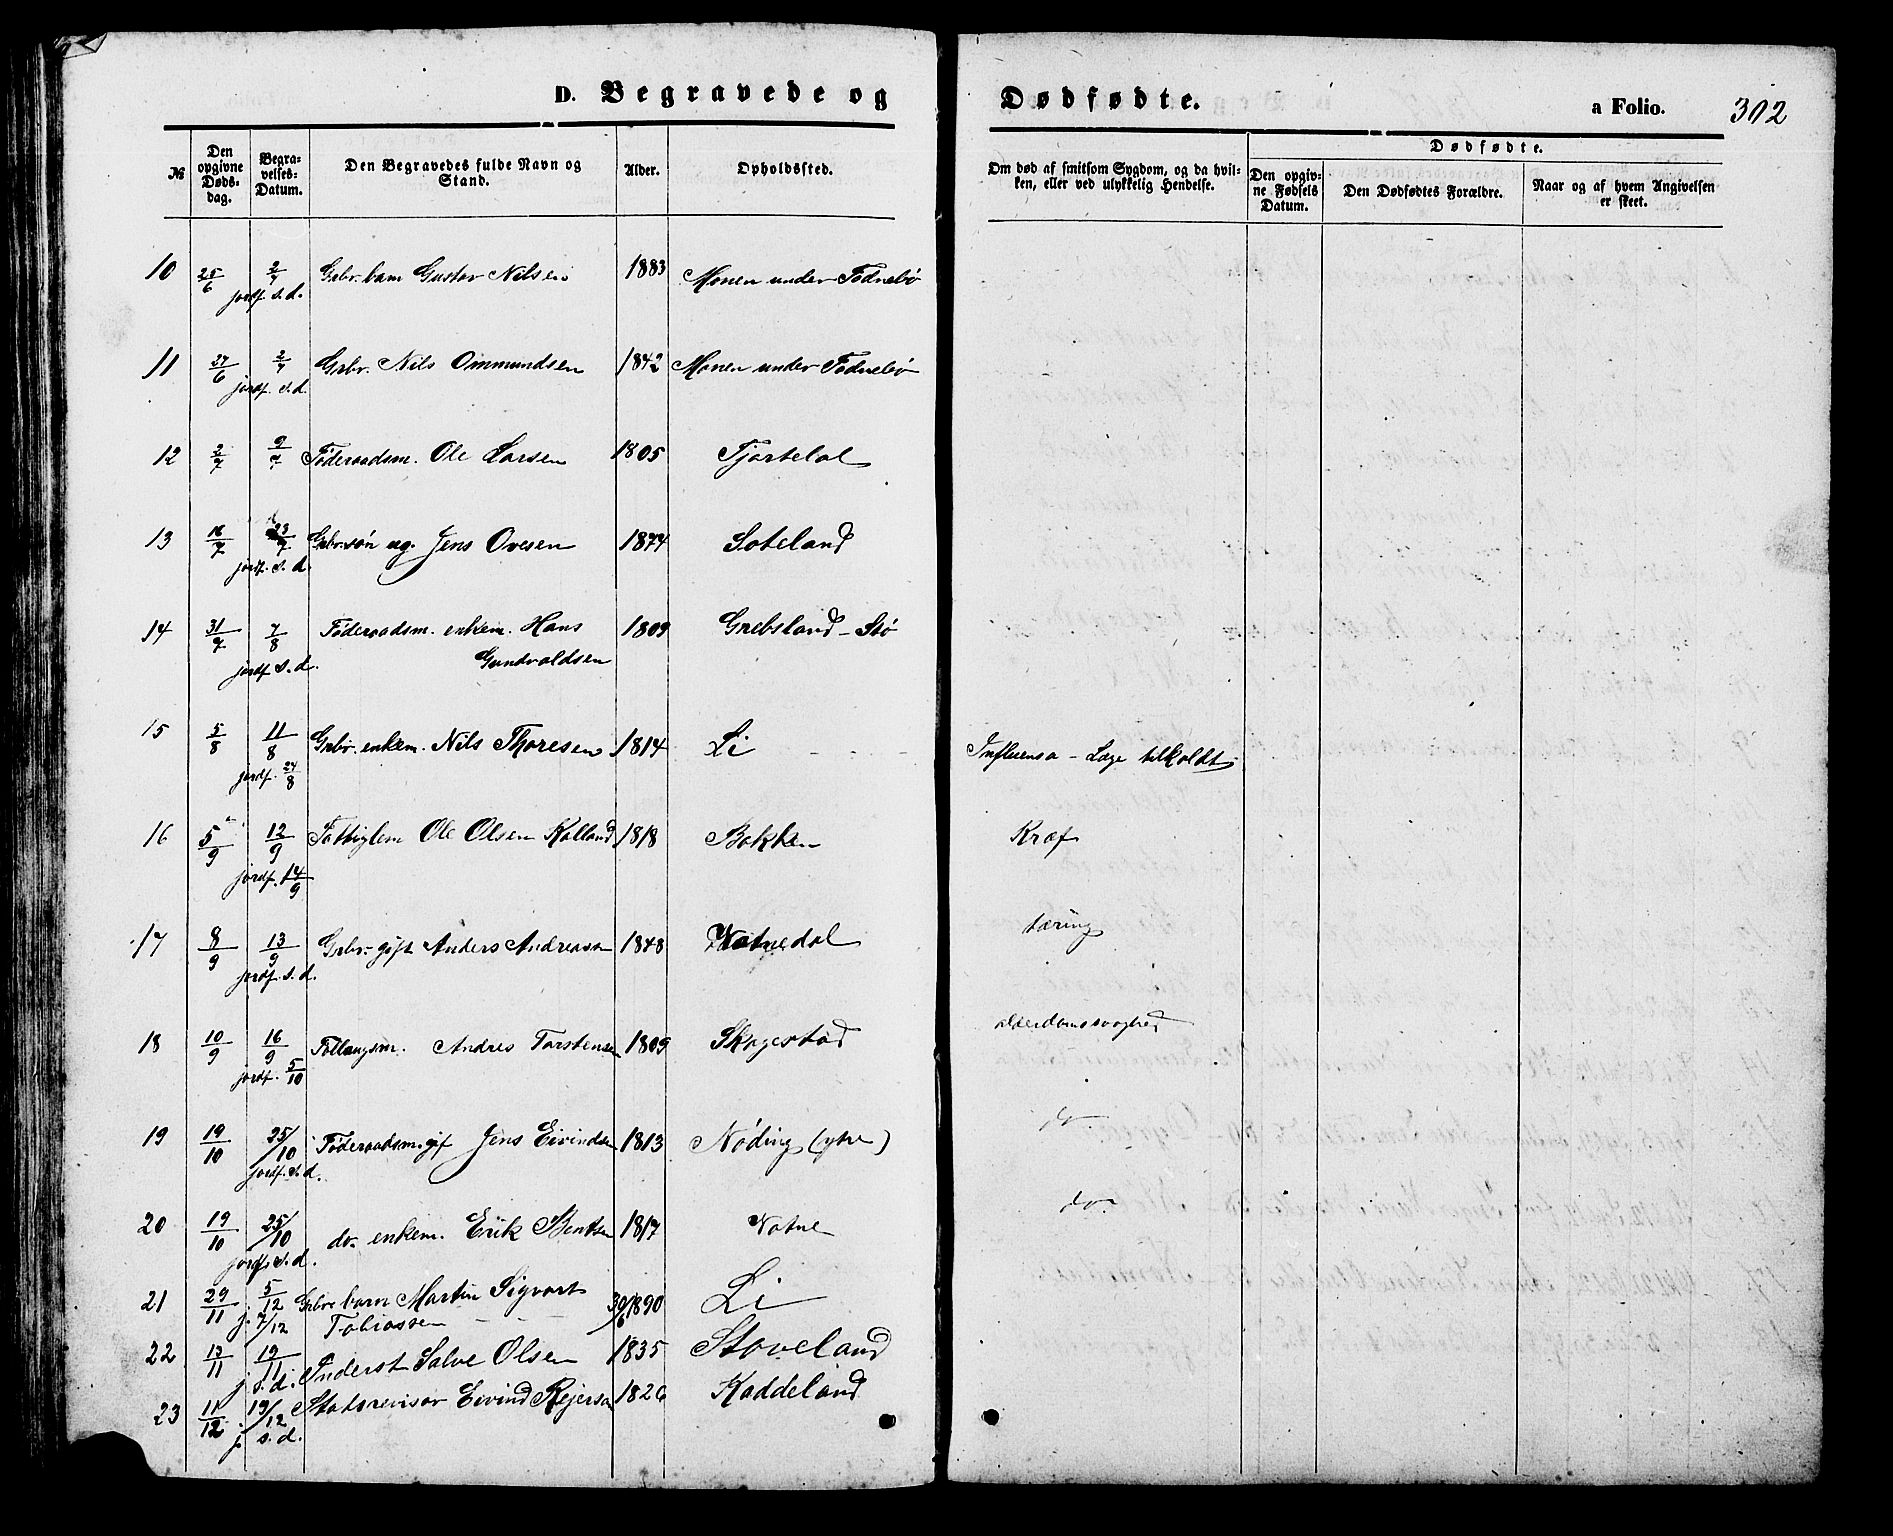 D. Begravede og Dødfødte.
a Folio. 302
№ Den opgivne Døds-dag. Begra-velses-Datum. Den Begravedes fulde Navn og Stand. Alder. Opholdssted. Om død af smitsom Sygdom, og da hvil-ken, eller ved ulykkelig Hendelse. Dødfødte.
Den opgiv-ne Fødsels Datum. Den Dødfødtes Forældre. Naar og af hvem Angivelsen er skeet.
10 25/6 2/7 Gbr. barn Gustav Nilsen 1883 Monen under Fodnebø
jordf. s. d.
11 27/6 2/7 Gbr. Nils Ommundsen 1842 Monen under Fodnebø
jordf. s. d.
12 2/7 9/7 Føderaadsm. Ole Larsen 1805 Tjortelal
13 16/7 23/7 Gbr. søn ug. Jens Ovesen 1874 Soteland
jordf. s. d.
14 31/7 7/8 Føderaadsm. enkem. Hans 1809 Grebsland - Stø
jordf s. d. Gundvaldsen
15 5/8 11/8 Gbr. enkem. Nils Thoresen 1814 Li Influensa - Læge tilkaldt
jordf. 24/8
16 5/9 12/9 Fattiglem Ole Olsen Kalland 1818 Bakken Kræf
jordf. 14/9
17 8/9 13/9 Gbr. gift Anders Andreassen 1848 Vatnedal tæring
jordf. s. d.
18 10/9 16/9 Follaugsm. Andres Torstensen 1809 Skogestad alderdomssvaghed
jordf. 5/10
19 19/10 25/10 Føderaadsm. gif Jens Eivindsen 1813 Nøding (ytre) do
jordf. s. d.
20 19/10 25/10 do. enkem. Erik Bentsen 1817 Vatne do.
jordf. s. d.
21 29/11 5/12 Gbr barn Martin Sigvart 1890 Li
j. 7/12 Tobiassen
22 13/11 19/11 Inderst Salve Olsen 1835 Stoveland
j. s. d.
23 11/12 19/12 Stadsrevisor Eivind Rejersen 1826 Kaddeland
j. s. d.